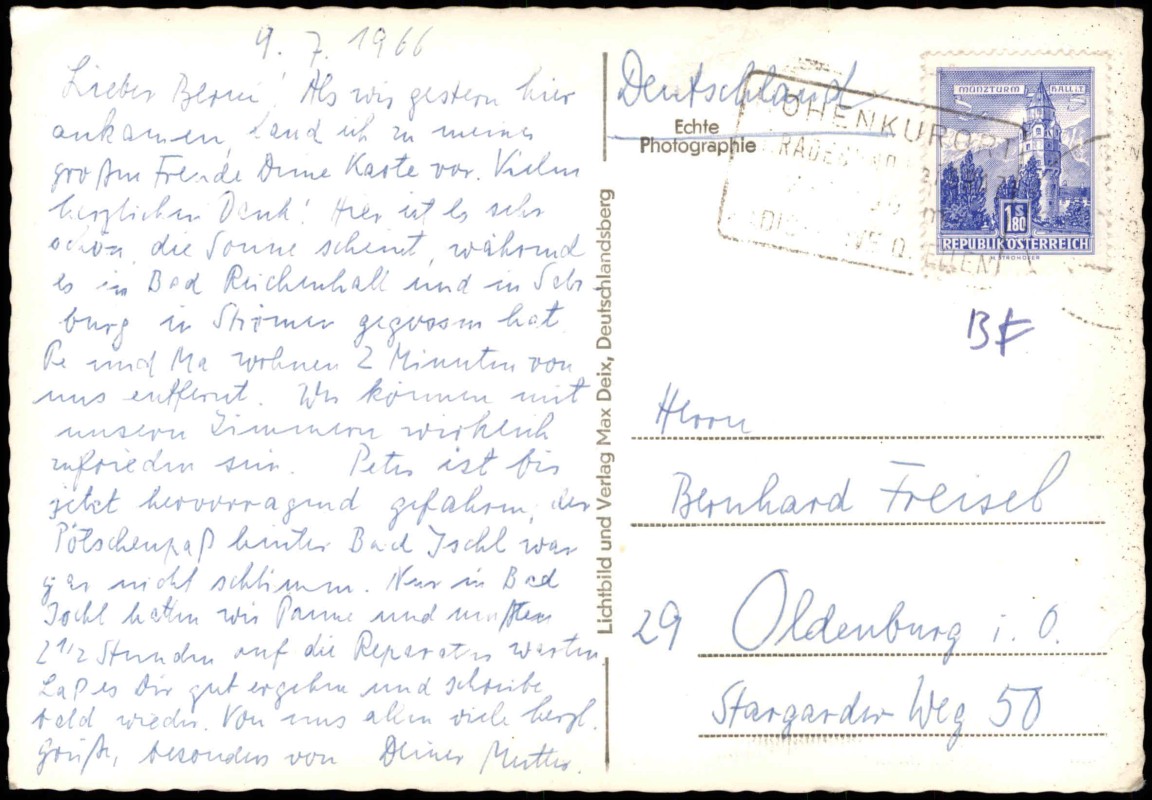 9. 7. 1966
Lieber Berni! Als wir gestern hier
ankamen, fand ich zu meiner
großen Freude Deine Karte vor. Vielen
herzlichen Dank! Hier ist es sehr
schön, die Sonne scheint, während
es in Bad Reichenhall und in Salz
burg in Strömen gegossen hat.
Pe und Ma wohnen 2 Minuten von
uns entfernt. Wir können mit
unseren Zimmern wirklich
zufrieden sein. Peter ist bis
jetzt hervorragend gefahren, der
Pötschenpaß hinter Bad Ischl war
gar nicht schlimm. Nur in Bad
Ischl hatten wir Panne und mußten
2 1/2 Stunden auf die Reparatur warten.
Laß es Dir gut ergehen und schreibe
bald wieder. Von uns allen viele herzl.
Grüße, besonders von Deiner Mutter.
Lichtbild und Verlag Max Deix, Deutschlandsberg
Deutschland
Echte
Photographie
HÖHENKURORT
MÜNZTURM HALL i.T.
1.80 S
REPUBLIK ÖSTERREICH
BF
Herrn
Bernhard Freisel
29 Oldenburg i. O.
Stargarder Weg 50